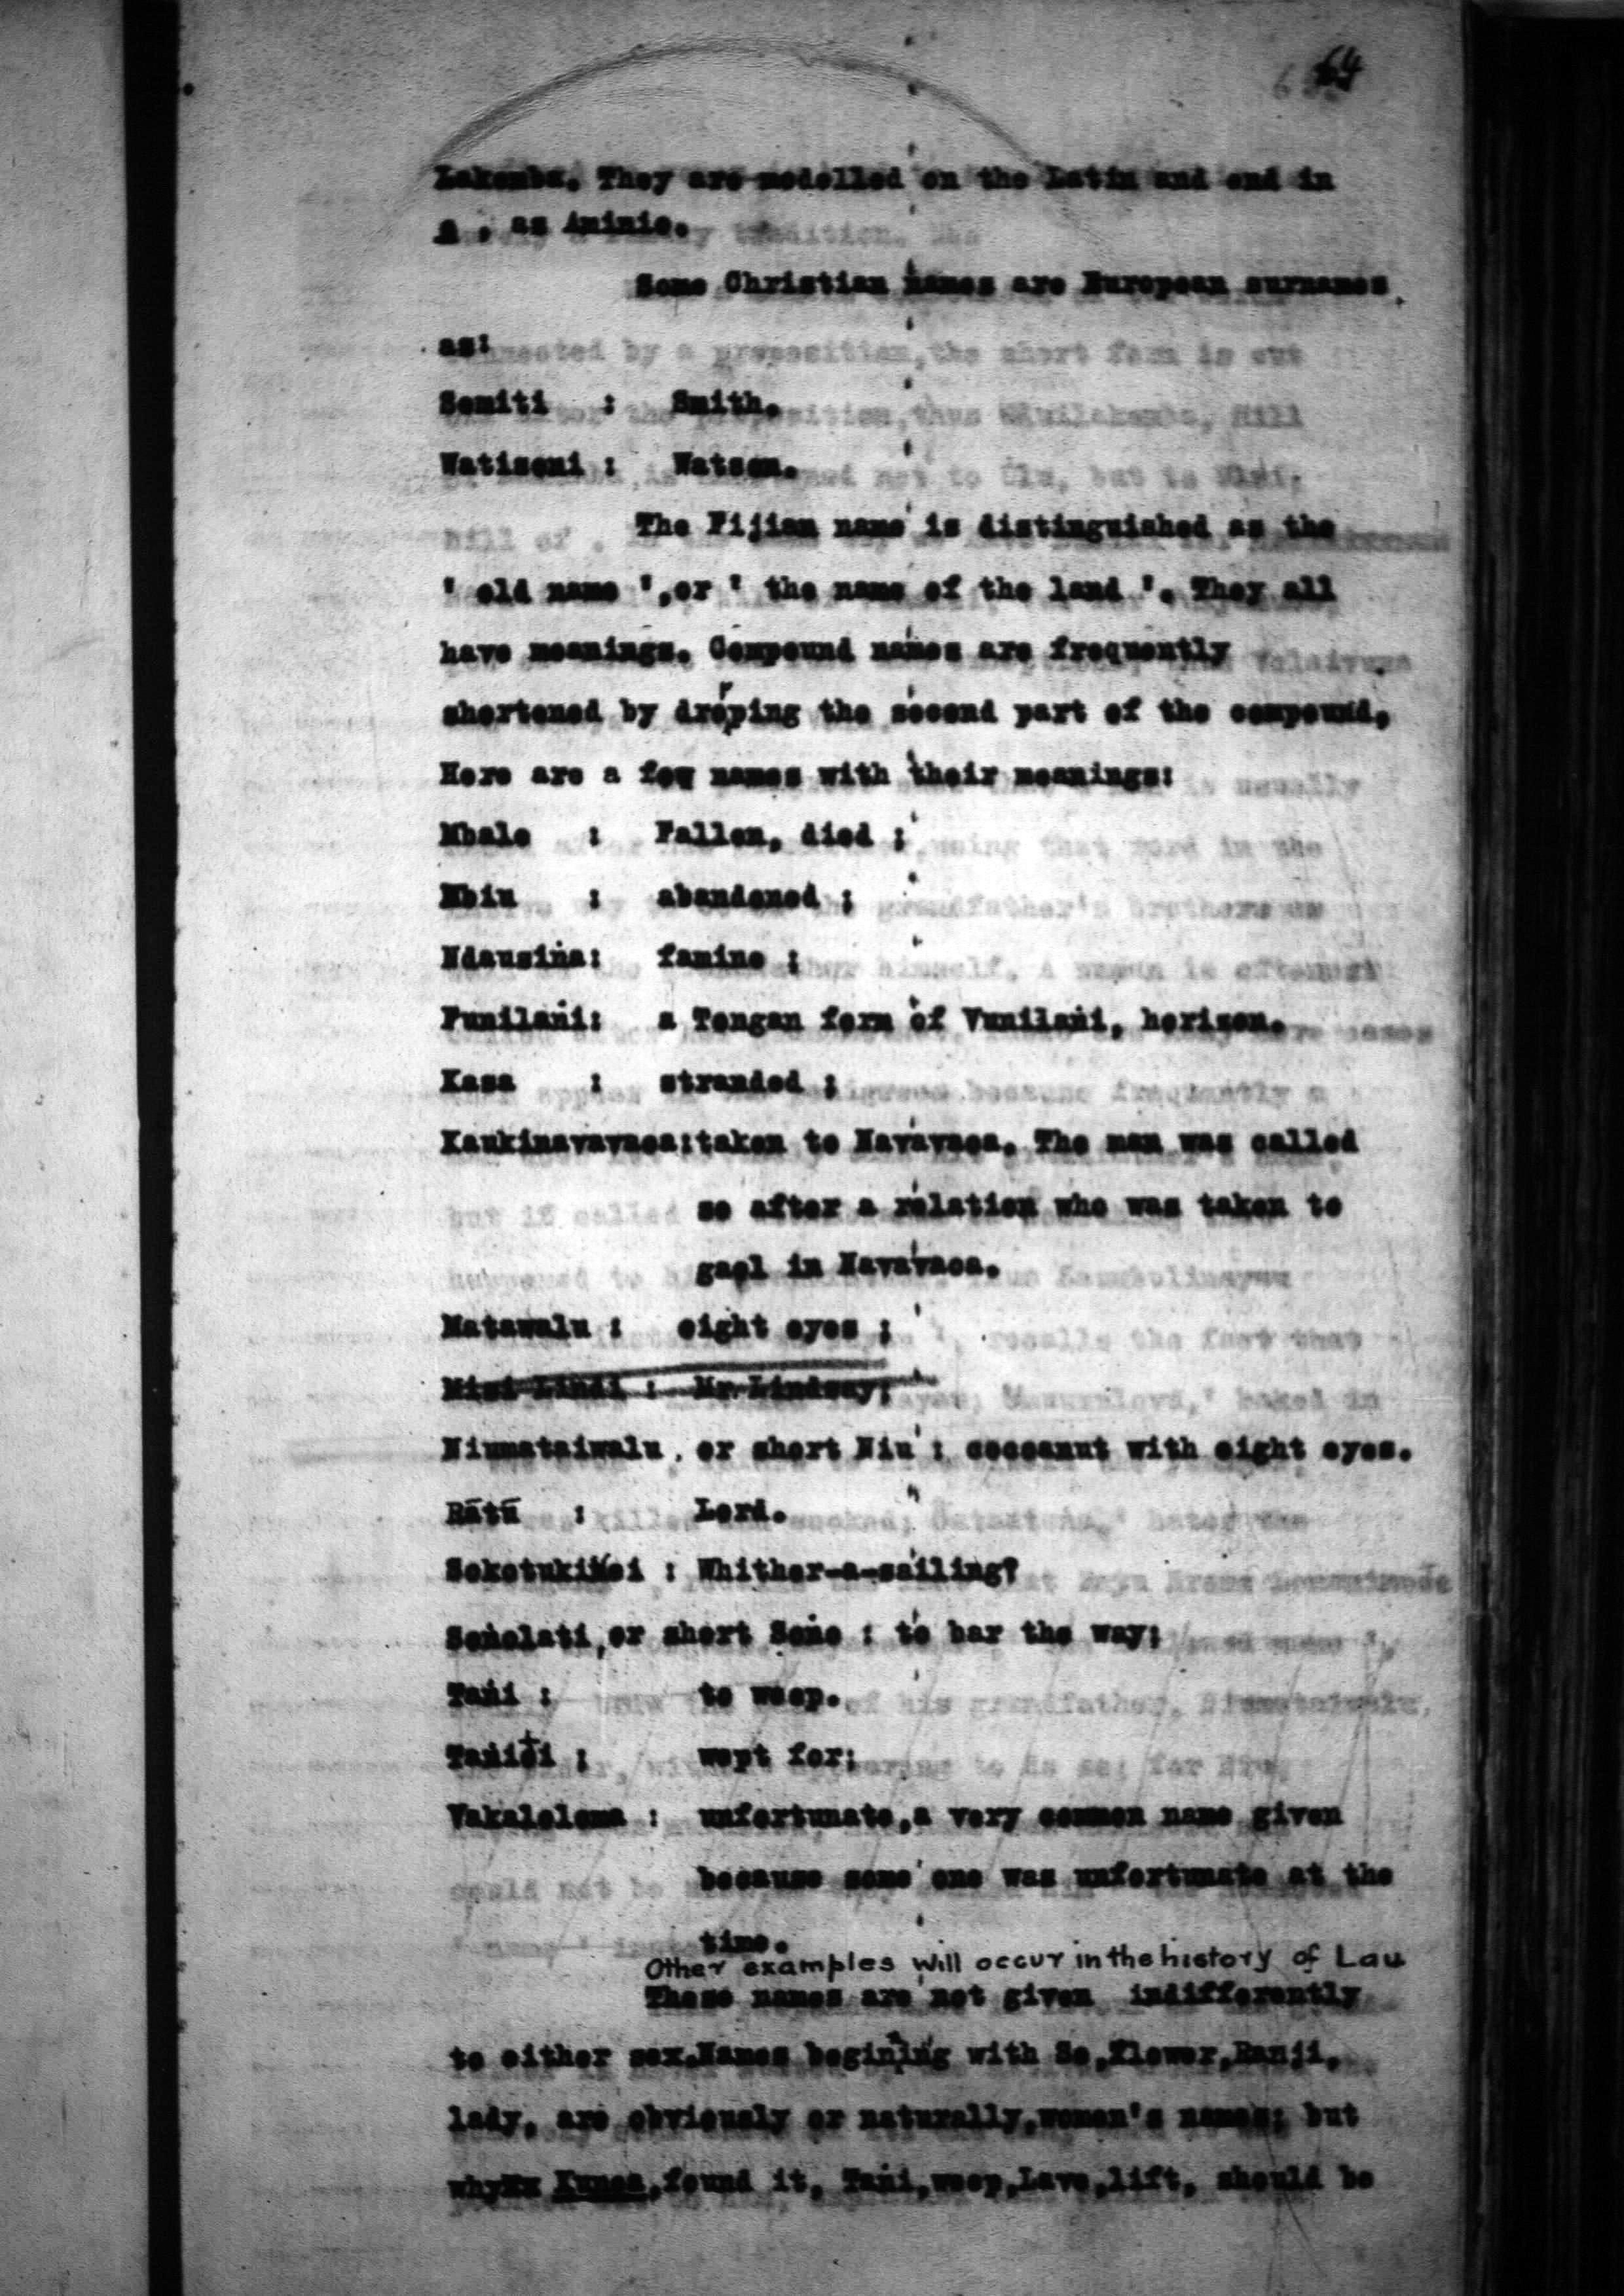 64
Lakemba. They are modelled on the Latin and end in
a , as Aminio.
Some Christian names are European surnames,
as:
Semiti : Smith.
Watiseni : Watson.
The Fijian name is distinguished as the
' old name ',or ' the name of the land '. They all
have meanings. Compound names are frequently
shortened by droping the second part of the compound,
Here are a few names with their meanings:
Mbale : Fallen, died ;
Mbiu : abandoned ;
Ndausiṅa: famine ;
Funilaṅi: a Tongan form of Vunilaṅi, horizon.
Kasa : stranded ;
Kaukinavavaoa:taken to Navavaoa. The man was called
so after a relation who was taken to
gaol in Navavaoa.
Matawalu : eight eyes ;
Misi Lindi : Mr Lindsay;
Niumataiwalu , or short Niu : cocoanut with eight eyes.
Rātū : Lord.
Sokotukiṅoi : Whither-a-sailing?
Soṅolati,or short Soṅo : to bar the way;
Taṅi : to weep.
Taṅiti : wept for;
Vakaloloma : unfortunate,a very common name given
because some one was unfortunate at the
time.
Other examples will occur in the history of Lau
These names are not given indifferently
to either sex.Names begining with Se,flower,Ranji,
lady, are obviously or naturally,women's names; but
why Kunea,found it, Taṅi,weep,Lave,lift, should be